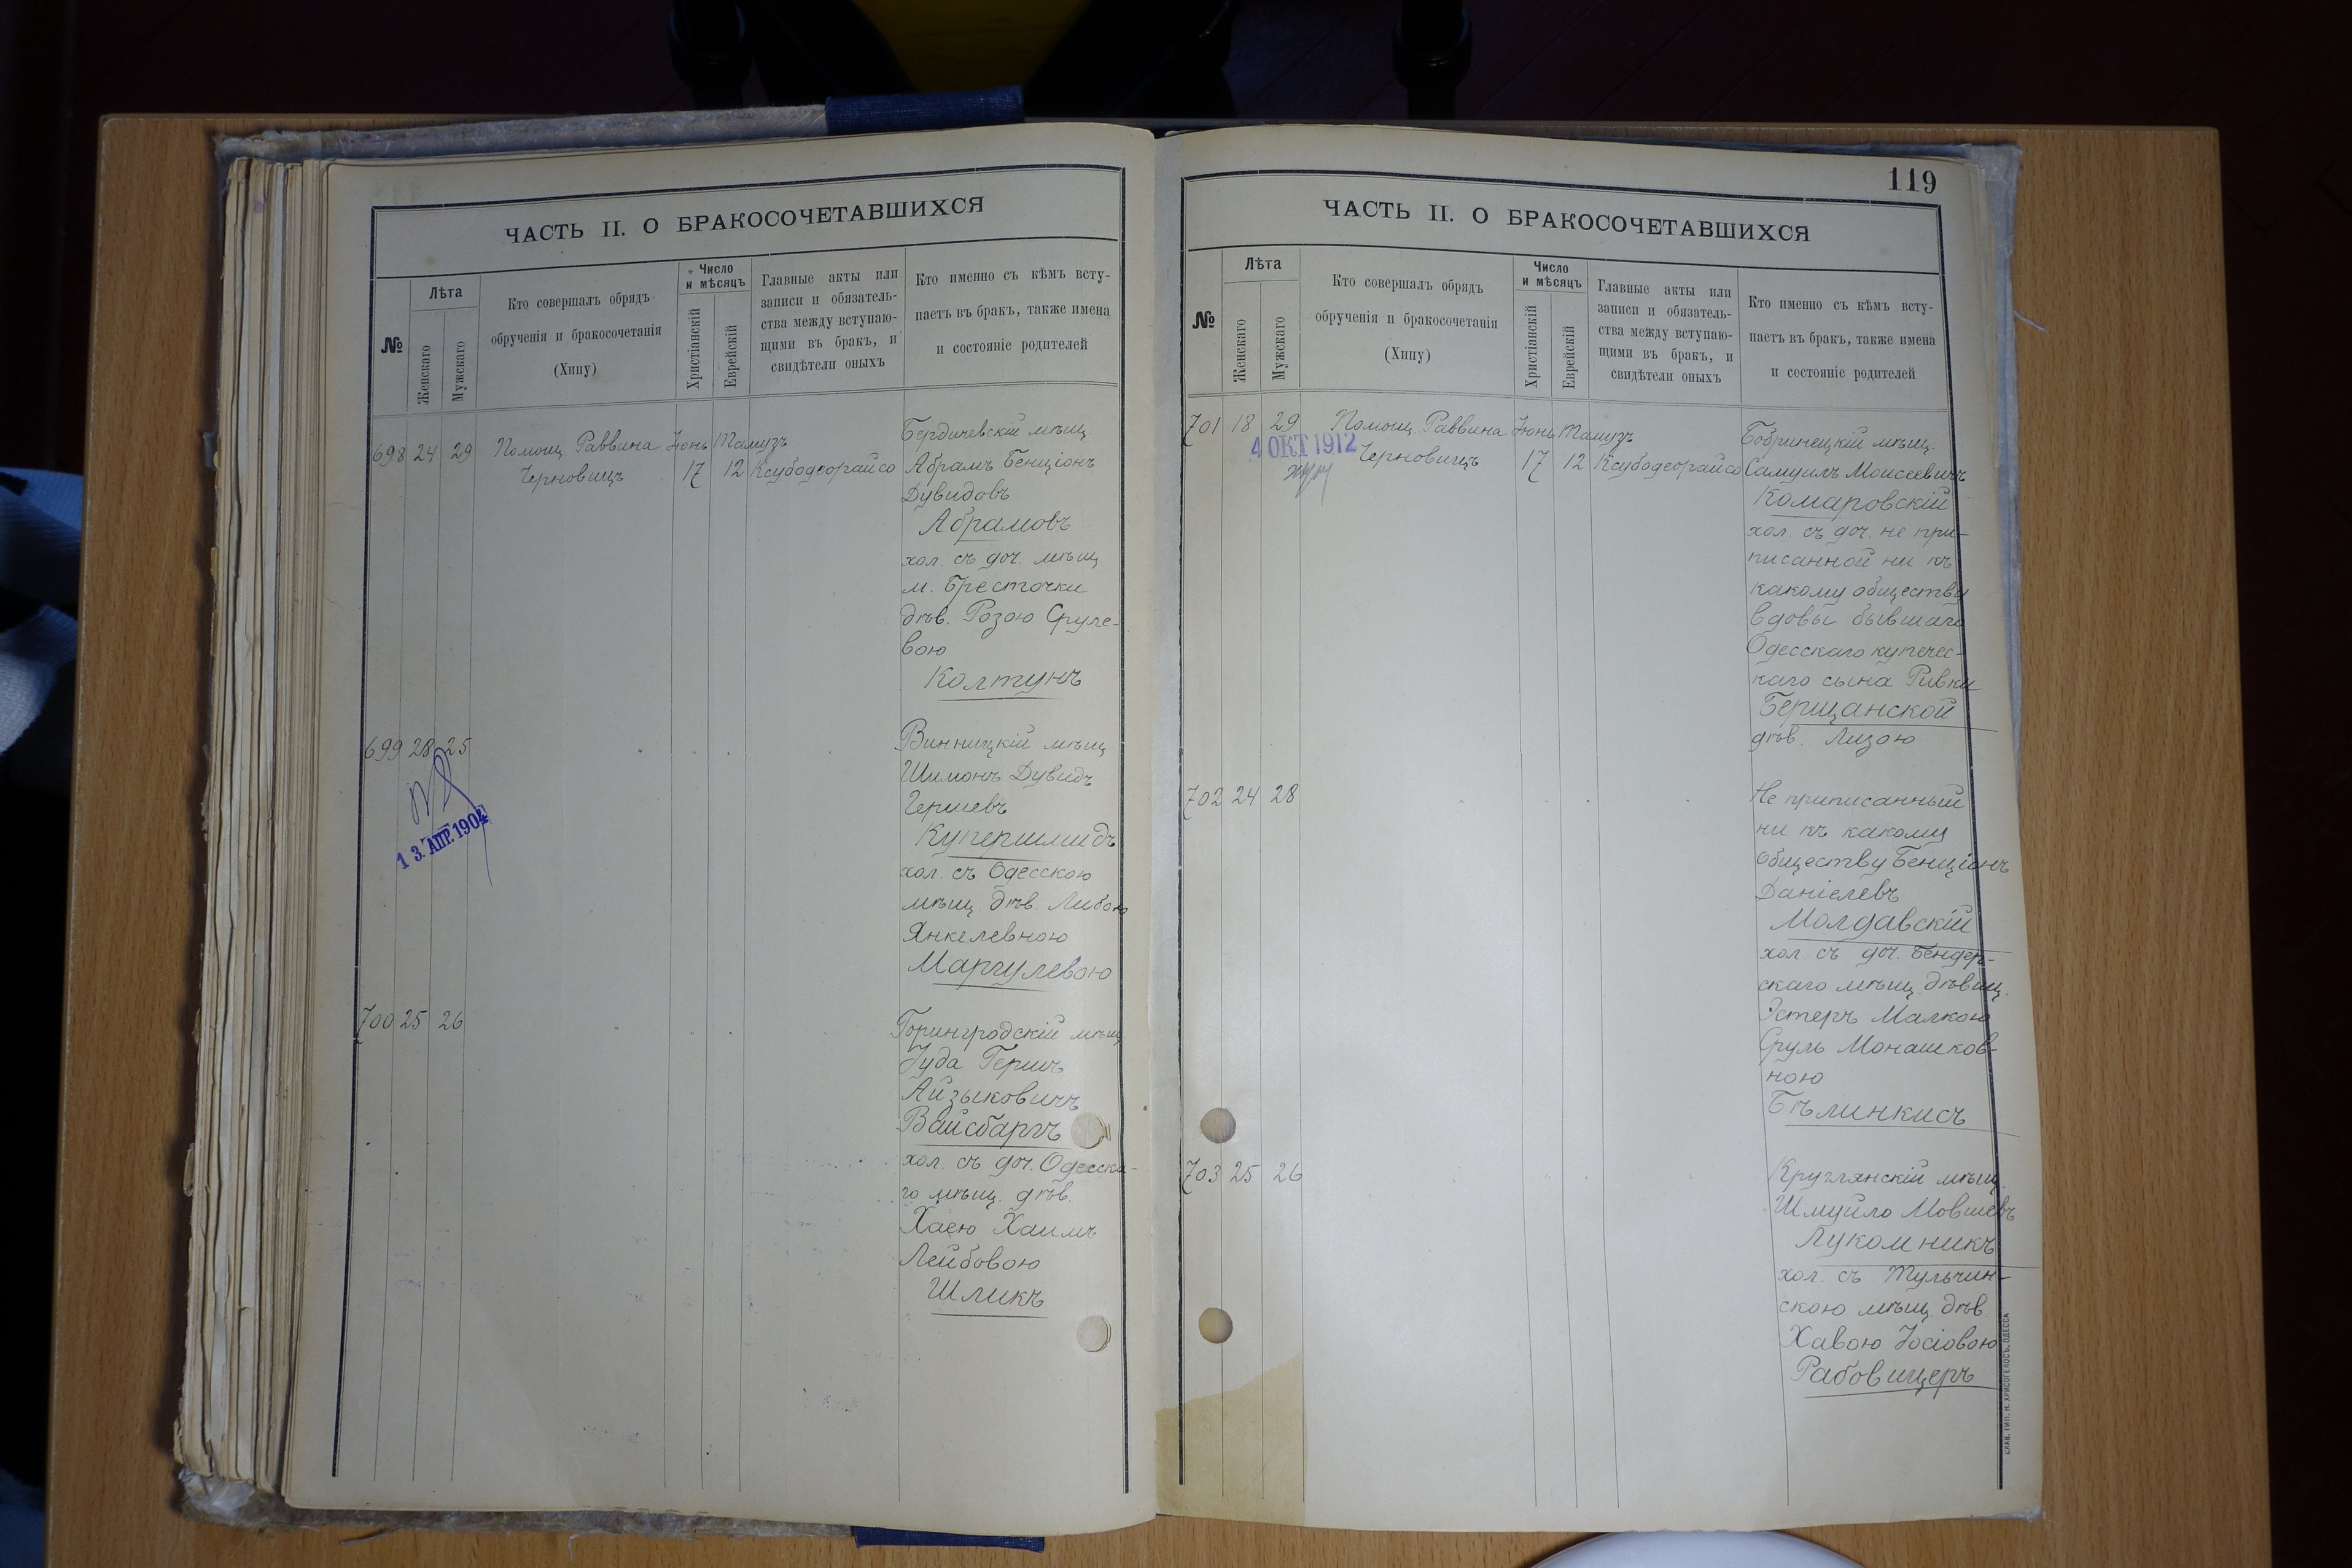 ЧАСТЬ II. О БРАКОСОЧЕТАВШИХСЯ
№
Лѣта
Женскаго
Мужскаго
Кто совершалъ обрядъ
обрученія и бракосочетанія
(Хипу)
Число
и мѣсяцъ
Христіанскій
Еврейскій
Главные акты или
записи и обязатель-
ства между вступаю-
щими въ бракъ, и
свидѣтели оныхъ
Кто именно съ кѣмъ всту-
паетъ въ бракъ, также имена
и состояніе родителей
698 24 29 Помощ. Раввина Іюнь Тамузъ
Черновицъ 17 12 Ксубодеорайсо
Бердичевскій мѣщ
Абрамъ Бенціонъ
Дувидовъ
Абрамовъ
хол. съ доч. мѣщ
м. Бресточки
дѣв. Розою Сруле-
вою
Колтунъ
699 28 25
13. АПР. 1904
Винницкій мѣщ
Шимонъ Дувидъ
Гершевъ
Купершмидъ
хол. съ Одесскою
мѣщ. дѣв. Либою
Янкелевною
Маргулевою
700 25 26
Горинградскій мѣщ
Іуда Гершъ
Айзыковичъ
Вайсбаргъ
хол. съ доч. Одесска-
го мѣщ. дѣв.
Хаею Хаимъ
Лейбовою
Шликъ
119
ЧАСТЬ II. О БРАКОСОЧЕТАВШИХСЯ
№
Лѣта
Женскаго
Мужскаго
Кто совершалъ обрядъ
обрученія и бракосочетанія
(Хипу)
Число
и мѣсяцъ
Христіанскій
Еврейскій
Главные акты или
записи и обязатель-
ства между вступаю-
щими въ бракъ, и
свидѣтели оныхъ
Кто именно съ кѣмъ всту-
паетъ въ бракъ, также имена
и состояніе родителей
701 18 29 Помощ. Раввина Іюнь Тамузъ
4 ОКТ 1912
Черновицъ 17 12 Ксубодеорайсо
Бобринецкій мѣщ.
Самуилъ Моисеевичъ
Комаровскій
хол. съ доч. не при-
писанной ни къ
какому обществу
вдовы бывшаго
Одесскаго купечес-
каго сына Ривки
Берщанской
дѣв. Лизою
702 24 28
Не приписанный
ни къ какому
обществу Бенціонъ
Даніелевъ
Молдавскій
хол. съ доч. Бендер-
скаго мѣщ. дѣвиц.
Эстеръ Малкою
Сруль Монашков-
ною
Бѣлинкисъ
703 25 26
Круглянскій мѣщ.
Шмуйло Мовшевъ
Лукомникъ
хол. съ Тульчин-
скою мѣщ. дѣв
Хавою Іосіовою
Рабовицеръ
СЛАВ. ТИП. Н. ХРИСОГЕЛОСЪ, ОДЕССА